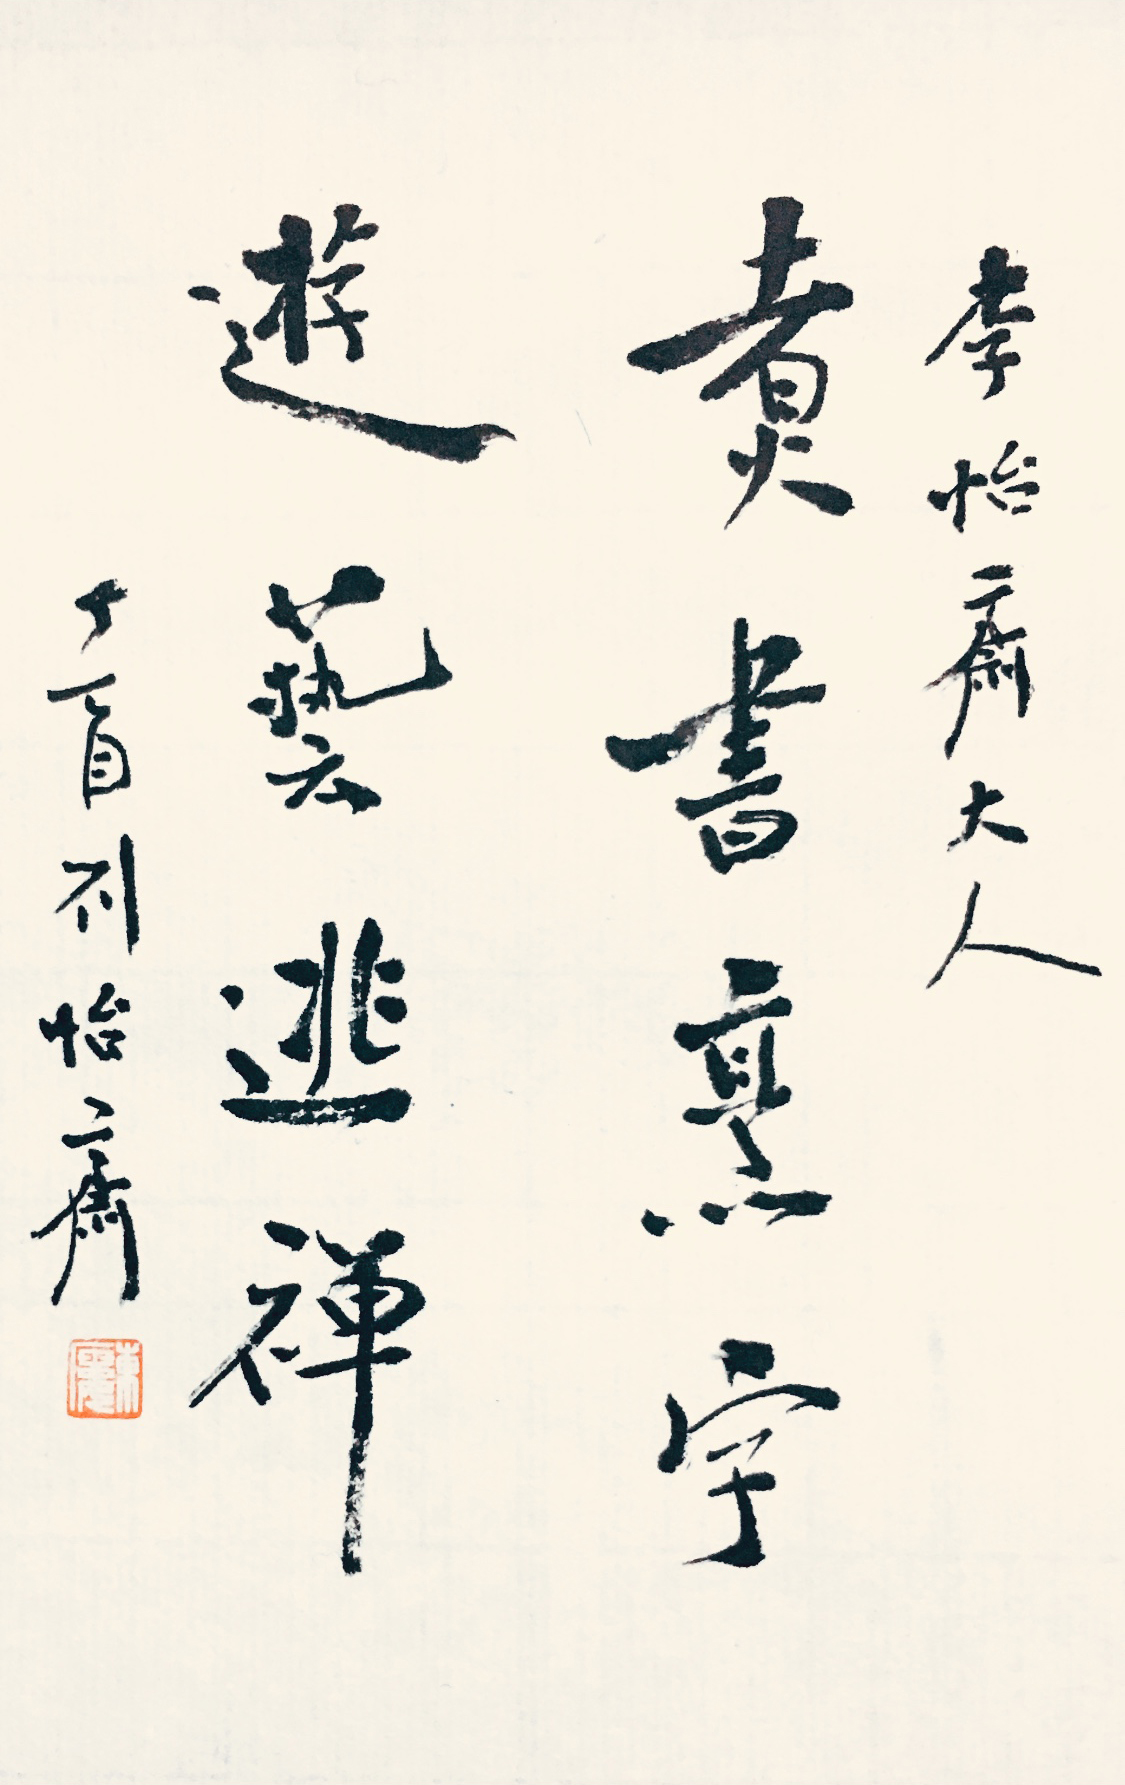 李怡齋大人
煑書烹字
遊藝逃禪
怡齋